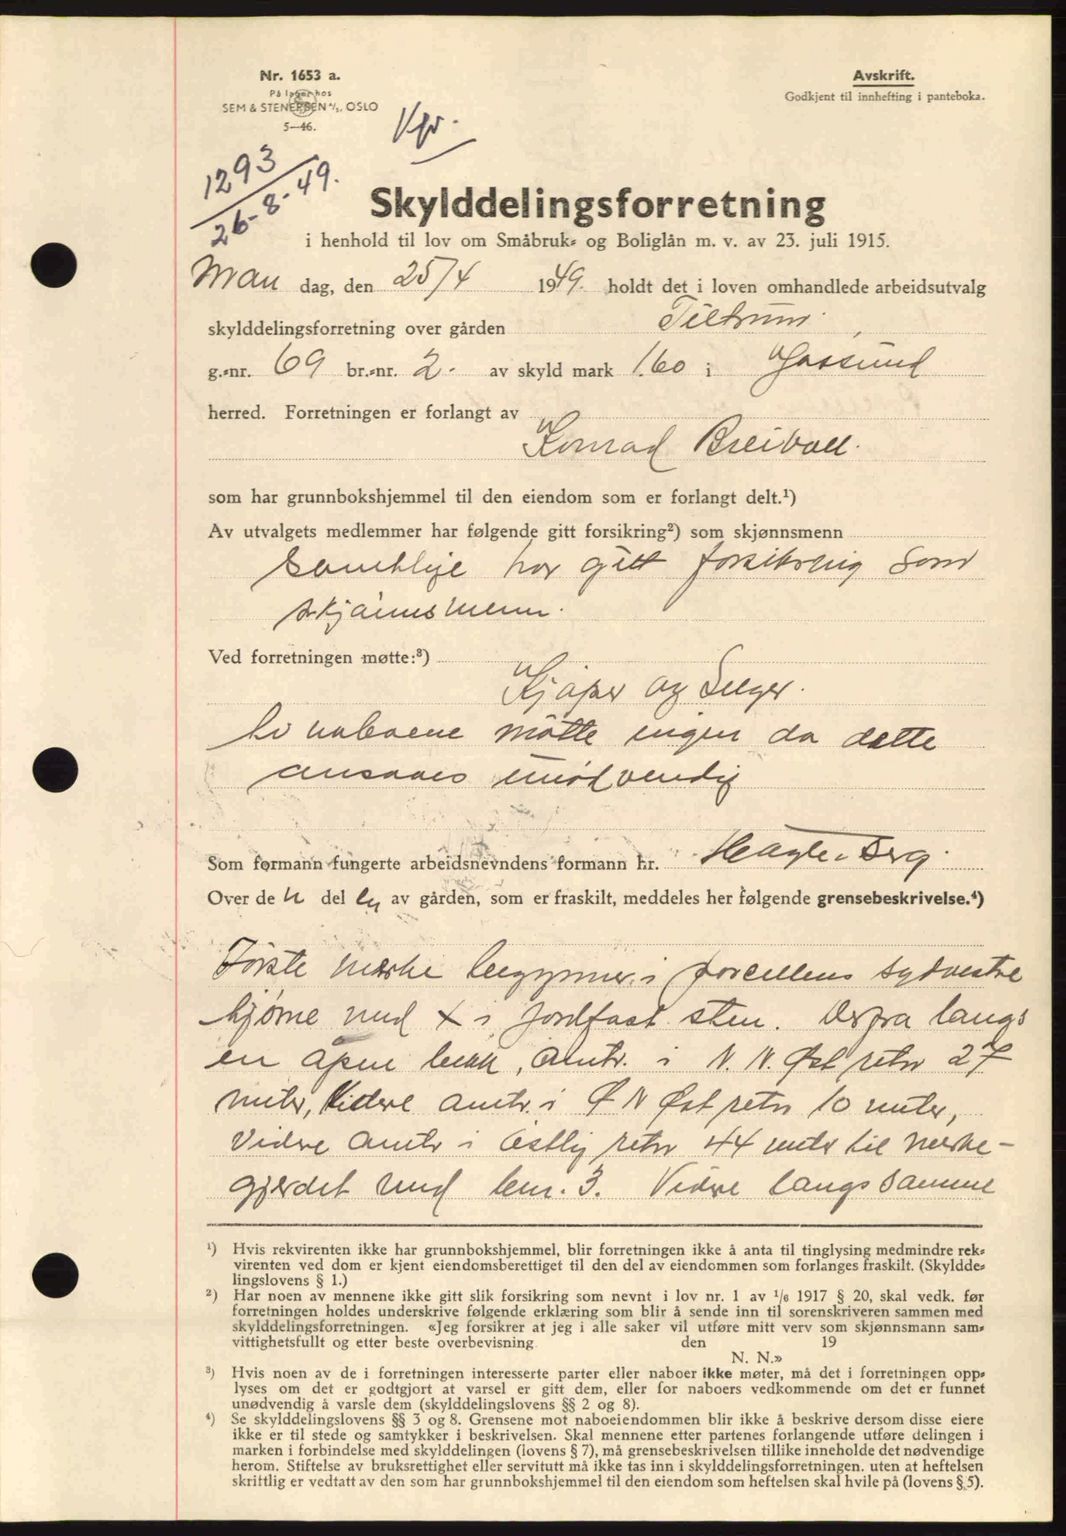 Nr. 1653 a.
På lager hos
SEM & STENERSEN A/S, OSLO
5—46.
Avskrift.
Godkjent til innhefting i panteboka.
1293
26-8-49.
Skylddelingsforretning
i henhold til lov om Småbruk- og Boliglån m. v. av 23. juli 1915.
Man dag, den 25/4 1949. holdt det i loven omhandlede arbeidsutvalg
skylddelingsforretning over gården Tiltrum.
g.-nr. 69 br.-nr. 2. av skyld mark 1.60 i Jossund
herred. Forretningen er forlangt av
Konrad Breivoll.
som har grunnbokshjemmel til den eiendom som er forlangt delt.¹)
Av utvalgets medlemmer har følgende gitt forsikring²) som skjønnsmenn
Samtlige har gitt forsikring som
skjønnsmenn.
Ved forretningen møtte:³)
Kjøper og Selger.
Av naboene møtte ingen da dette
ansaaes unødvendig
Som formann fungerte arbeidsnevndens formann hr. Berg.
Over de n del en av gården, som er fraskilt, meddeles her følgende grensebeskrivelse.⁴)
Første merke begynner i parcellens sydvestre
hjørne med X i jordfast sten. Derfra langs
en åpen bekk, omtr. i N. N. Øst retn 27
meter, Videre omtr. i Ø N Øst retn 10 meter,
Videre omtr i Østlig retn 44 meter til merke-
gjerdet med bnr. 3. Videre langs samme
¹) Hvis rekvirenten ikke har grunnbokshjemmel, blir forretningen ikke å anta til tinglysing medmindre rek-
virenten ved dom er kjent eiendomsberettiget til den del av eiendommen som forlanges fraskilt. (Skyldde-
lingslovens § 1.)
²) Har noen av mennene ikke gitt slik forsikring som nevnt i lov nr. 1 av 1/6 1917 § 20, skal vedk. før
forretningen holdes underskrive følgende erklæring som blir å sende inn til sorenskriveren sammen med
skylddelingsforretningen. «Jeg forsikrer at jeg i alle saker vil utføre mitt verv som skjønnsmann sam-
vittighetsfullt og etter beste overbevisning den 19
N. N.»
³) Hvis noen av de i forretningen interesserte parter eller naboer ikke møter, må det i forretningen opp-
lyses om det er godtgjort at varsel er gitt dem, eller for naboers vedkommende om det er funnet
unødvendig å varsle dem (skylddelingslovens §§ 2 og 8).
⁴) Se skylddelingslovens §§ 3 og 8. Grensene mot naboeiendommen blir ikke å beskrive dersom disse eiere
ikke er til stede og samtykker i beskrivelsen. Skal mennene etter partenes forlangende utføre delingen i
marken i forbindelse med skylddelingen (lovens § 7), må grensebeskrivelsen tillike inneholde det nødvendige
herom. Stiftelse av bruksrettighet eller servitutt må ikke tas inn i skylddelingsforretningen. uten at heftelsen
skriftlig er vedtatt av den som har grunnbokshjemmel til den eiendom som heftelsen skal hvile på (lovens § 5).